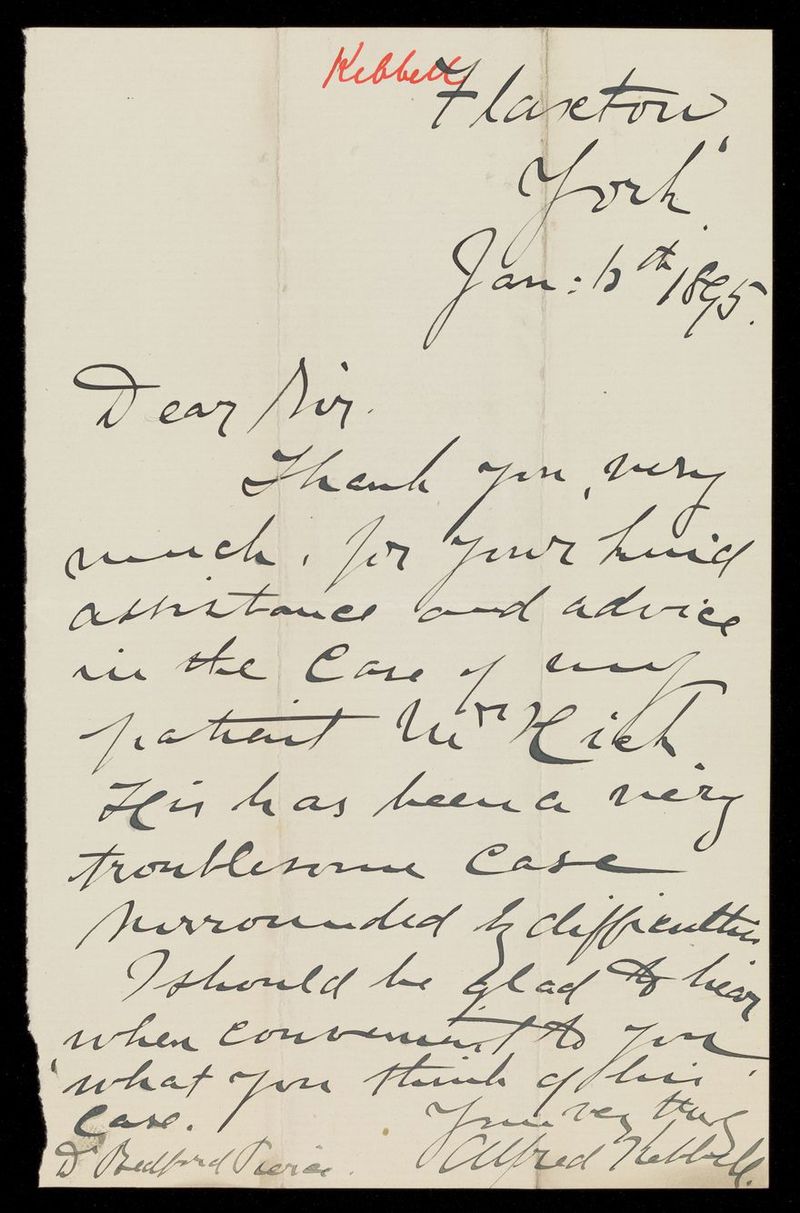 Kebbell
Flaxton,
York.
Jan: 6th 1895.
Dear Sir.
Thank you, very
much, for your kind
assistance and advice
in the case of my
patient Mr Hick.
His has been a very
troublesome case
surrounded by difficulties
I should be glad to hear
when convenient to you,
what you think of his
case.
Yours very truly
Alfred Kebbell.
Dr Bedford Pierce.